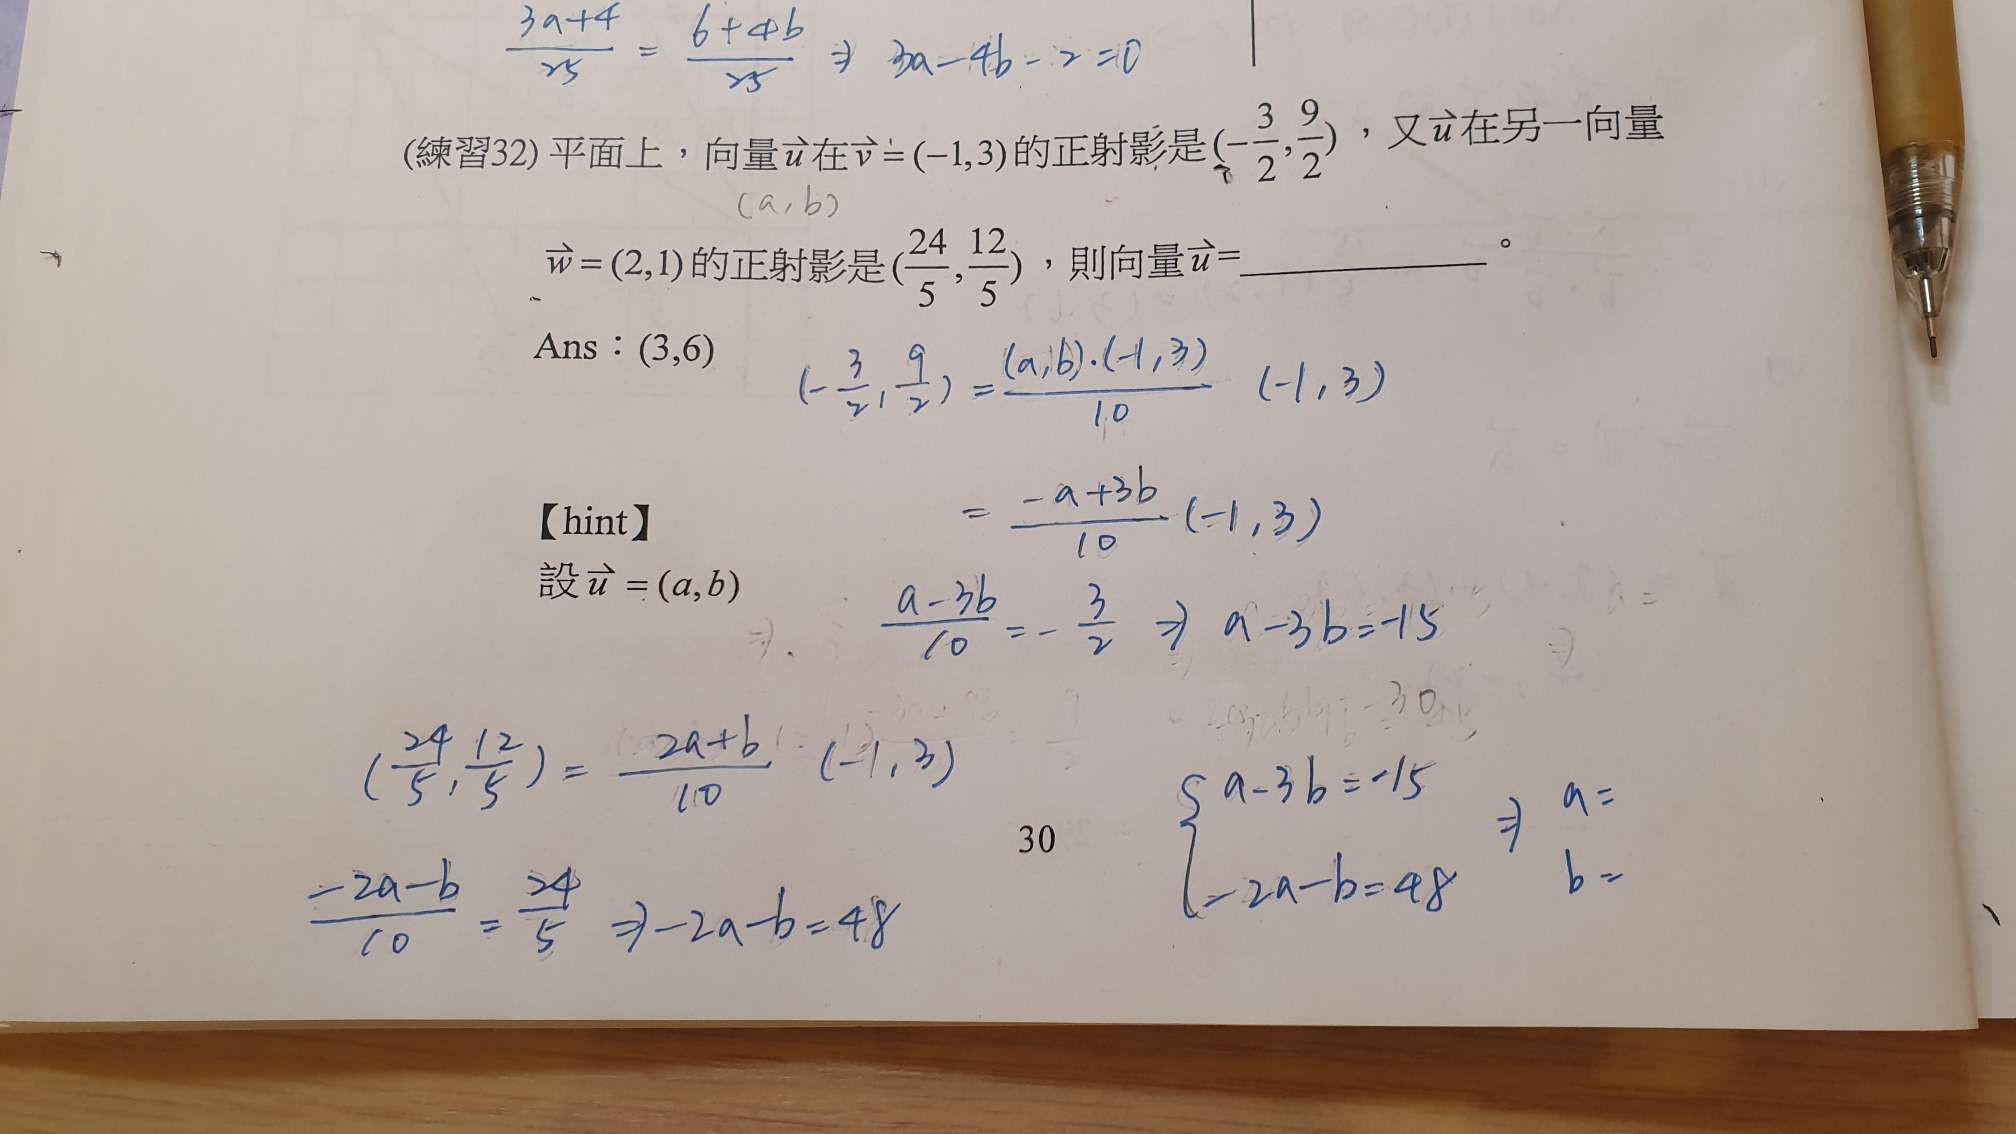 (3a+4)/25 = (6+4b)/25 ⇒ 3a-4b-2=0
(練習32) 平面上，向量u⃗在v⃗=(−1,3)的正射影是(−3/2,9/2)，又u⃗在另一向量
(a,b)
w⃗=(2,1)的正射影是(24/5,12/5)，則向量u⃗=＿＿＿＿＿＿。
Ans：(3,6)
(-3/2,9/2) = (a,b)·(-1,3)/10 (-1,3)
【hint】
= (-a+3b)/10 (-1,3)
設u⃗=(a,b)
(a-3b)/10 = -3/2 ⇒ a-3b=-15
(24/5,12/5) = (2a+b)/10 (-1,3)
{ a-3b=-15 ⇒ a=
30
-2a-b=48 b=
(-2a-b)/10 = 24/5 ⇒ -2a-b=48